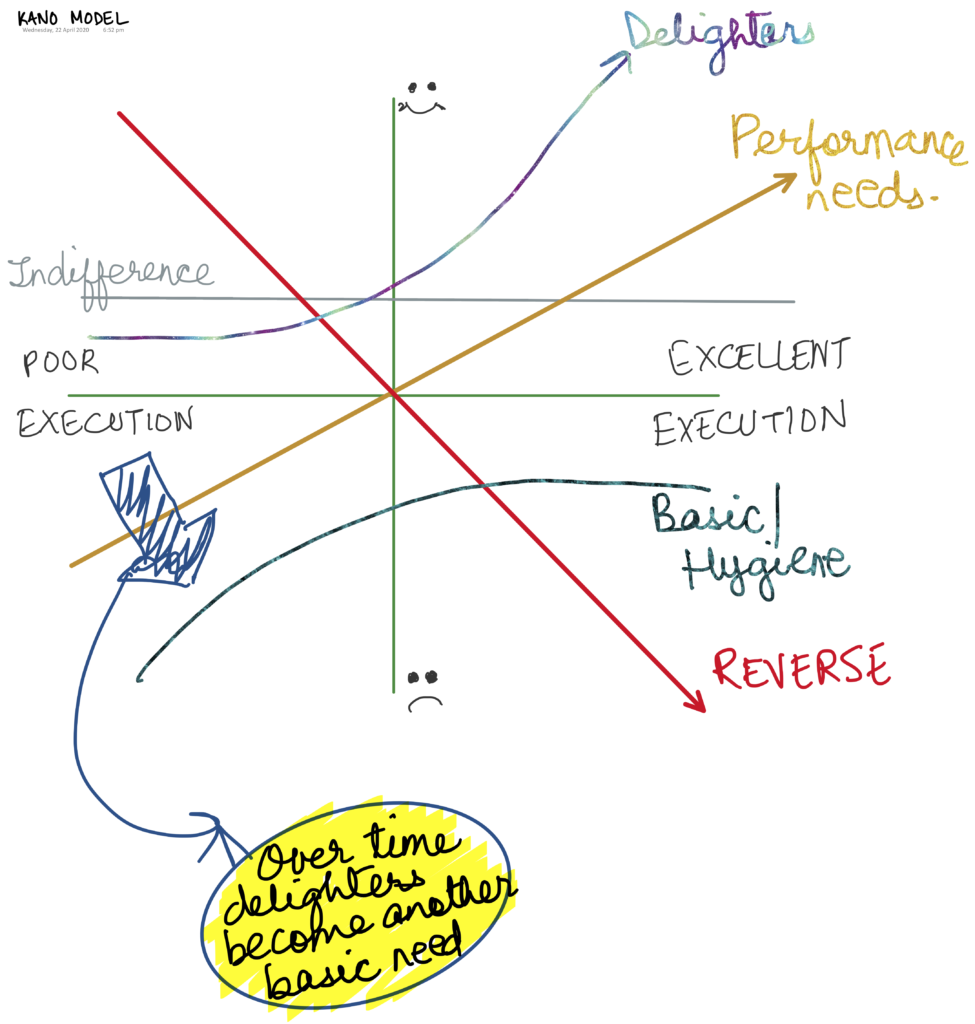 KANO MODEL
Wednesday, 22 April 2020 6:52 pm
Delighters
Performance
needs.
Indifference
POOR
EXECUTION
EXCELLENT
EXECUTION
Basic/
Hygiene
REVERSE
Over time
delighters
become another
basic need